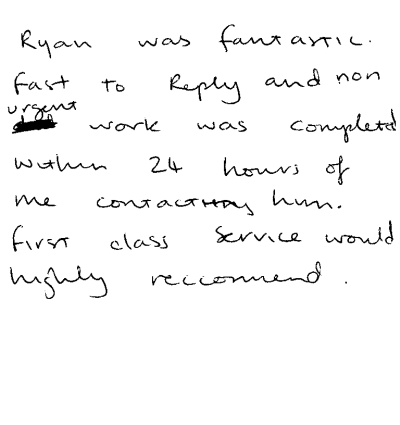 Ryan was fantastic.
Fast to Reply and non
urgent
work was completed
within 24 hours of
me contacting him.
First class service would
highly reccomend.